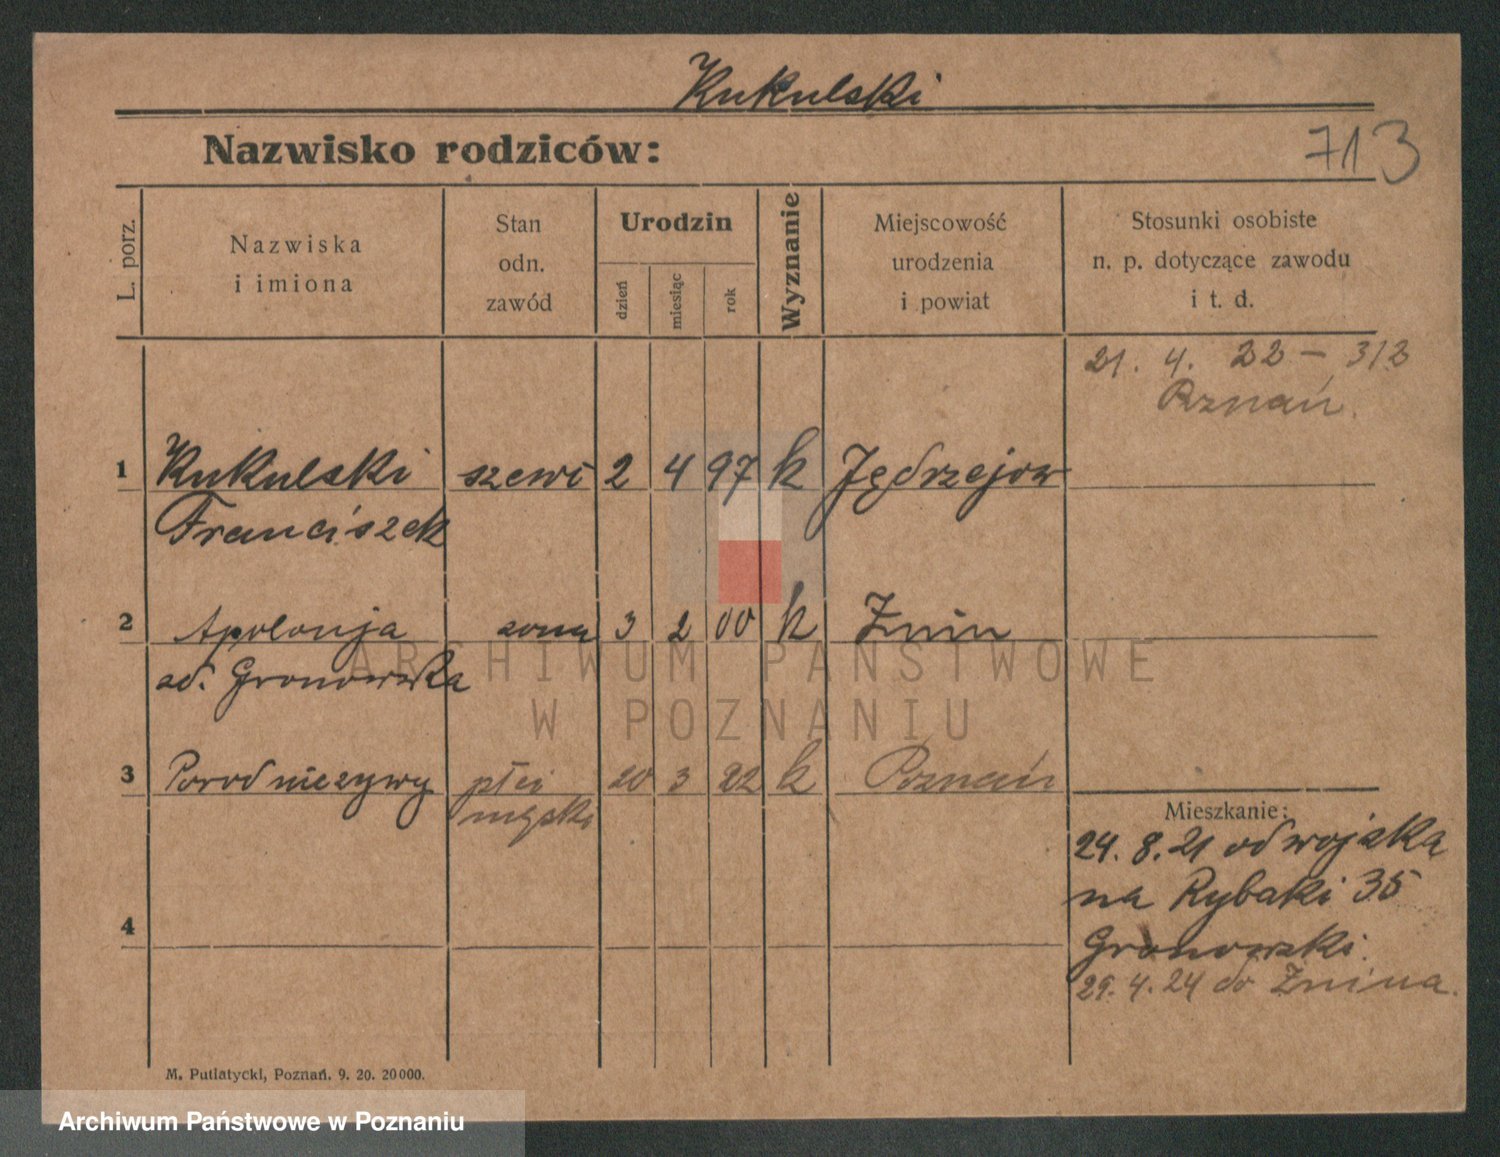 Kukulski
Nazwisko rodziców:
713
L. porz.
Nazwiska
i imiona
Stan
odn.
zawód
Urodzin
dzień
miesiąc
rok
Wyznanie
Miejscowość
urodzenia
i powiat
Stosunki osobiste
n. p. dotyczące zawodu
i t. d.
21. 4. 22 – 313
Poznań.
1 Kukulski szewc 2 4 97 k Jędrzejow
Franciszek
2 Apolonja zona 3 2 00 k Żnin
od. Gronowska
3 Porod niezywy płci 20 3 22 k Poznań
męski
Mieszkanie:
24. 8. 21 od wojska
na Rybaki 35
Gronowski.
29. 4. 24 do Żnina.
4
M. Putiatycki, Poznań. 9. 20. 20000.
ARCHIWUM PAŃSTWOWE
W POZNANIU
Archiwum Państwowe w Poznaniu